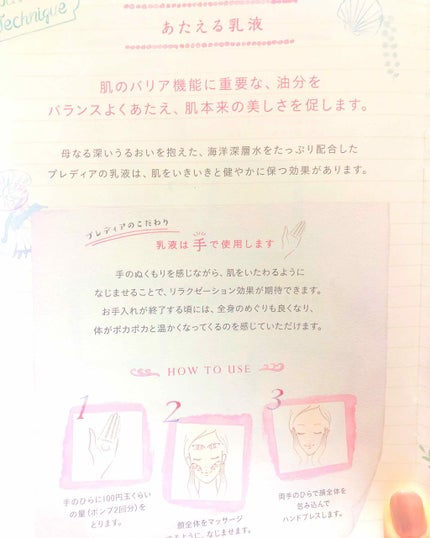 Technique
あたえる乳液
肌のバリア機能に重要な、油分を
バランスよくあたえ、肌本来の美しさを促します。
母なる深いうるおいを抱えた、海洋深層水をたっぷり配合した
プレディアの乳液は、肌をいきいきと健やかに保つ効果があります。
プレディアのこだわり
乳液は手で使用します
手のぬくもりを感じながら、肌をいたわるように
なじませることで、リラクゼーション効果が期待できます。
お手入れが終了する頃には、全身のめぐりも良くなり、
体がポカポカと温かくなってくるのを感じていただけます。
HOW TO USE
1
2
3
手のひらに100円玉くらい
の量(ポンプ2回分)を
とります。
顔全体をマッサージ
するように、なじませます。
両手のひらで顔全体を
包み込んで
ハンドプレスします。